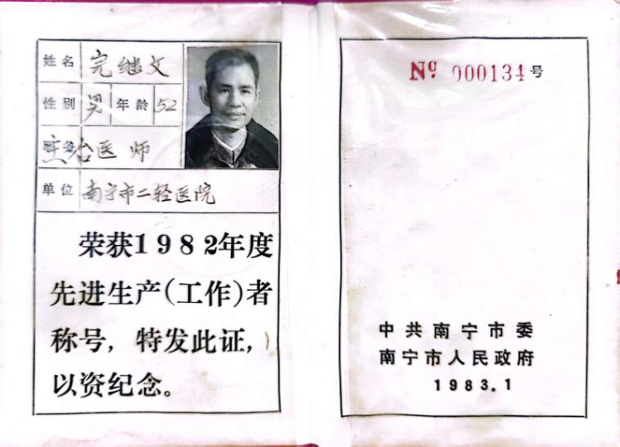 姓名 完继文
性别 男 年龄 52
职务 主治医师
单位 南宁市二轻医院
荣获1982年度
先进生产(工作)者
称号，特发此证，
以资纪念。
№ 000134号
中共南宁市委
南宁市人民政府
1983.1